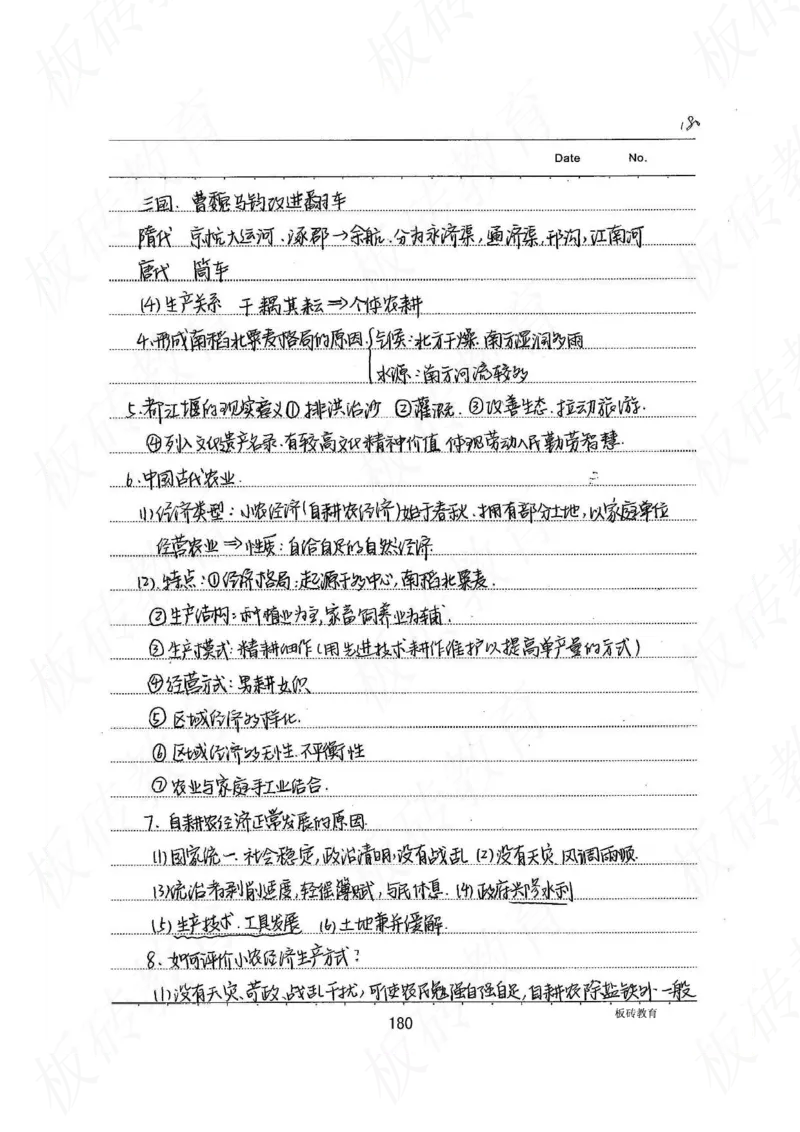 180
Date No.
三国. 曹魏马钧改进翻车
隋代 京杭大运河.涿郡→余航.分为永济渠,通济渠,邗沟,江南河
唐代 筒车
(4)生产关系 千耦其耘⇒个体农耕
4.形成南稻北粟麦格局的原因{气候:北方干燥.南方湿润多雨
水源:南方河流较多
5.都江堰的现实意义①排洪治沙 ②灌溉. ③改善生态.拉动旅游.
④列入文化遗产名录.有较高文化精神价值 体现劳动人民勤劳智慧.
6.中国古代农业.
(1)经济类型:小农经济(自耕农经济)始于春秋.拥有部分土地,以家庭单位
经营农业⇒性质:自给自足的自然经济.
(2).特点:①经济格局:起源于多中心,南稻北粟麦.
②生产结构:种植业为主,家畜饲养业为辅.
③生产模式:精耕细作(用先进技术耕作维护以提高单产量的方式)
④经营方式:男耕女织
⑤区域经济多样化.
⑥区域经济多元性.不平衡性
⑦农业与家庭手工业结合.
7.自耕农经济正常发展的原因.
(1)国家统一.社会稳定,政治清明,没有战乱 (2)没有天灾.风调雨顺.
(3)统治者剥削适度,轻徭薄赋,与民休息. (4)政府兴修水利
(5)生产技术.工具发展 (6)土地兼并缓解.
8.如何评价小农经济生产方式?
(1)没有天灾、苛政、战乱干扰,可使农民勉强自强自足,自耕农除盐铁外一般
板砖教育
180